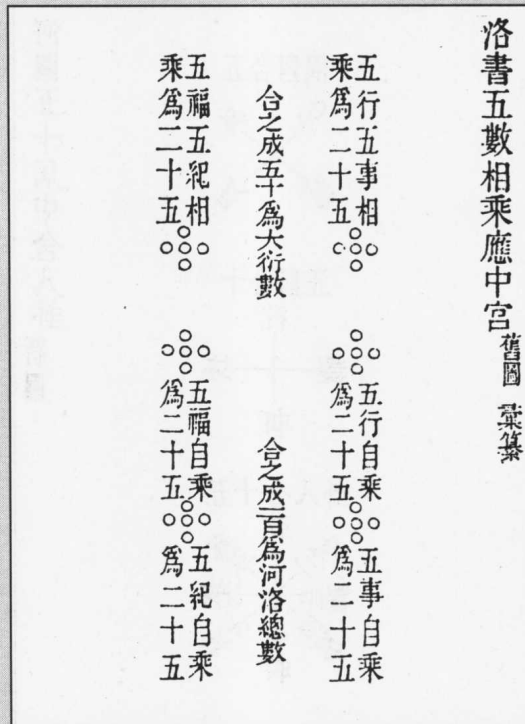 洛書五數相乘應中宮 舊圖 彙纂
五行五事相
乘爲二十五
五行自乘
爲二十五
五事自乘
爲二十五
合之成五十爲大衍數
合之成一百爲河洛總數
五福五紀相
乘爲二十五
五福自乘
爲二十五
五紀自乘
爲二十五